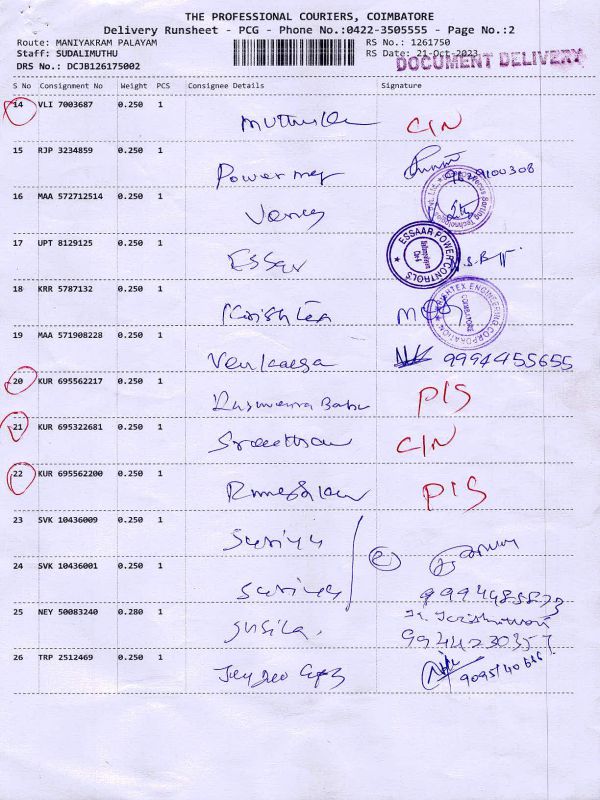 THE PROFESSIONAL COURIERS, COIMBATORE
Delivery Runsheet - PCG - Phone No.:0422-3505555 - Page No.:2
Route: MANIYAKRAM PALAYAM RS No.: 1261750
Staff: SUDALIMUTHU RS Date: 21-Oct-2023
DRS No.: DCJB126175002 DOCUMENT DELIVERY
S No Consignment No Weight PCS Consignee Details Signature
14 VLI 7003687 0.250 1 C/N
15 RJP 3234859 0.250 1 Power
16 MAA 572712514 0.250 1
17 UPT 8129125 0.250 1 Essar ESSAAR POWER CONTROLS
18 KRR 5787132 0.250 1 ENGINEERING CORPORATION COIMBATORE
19 MAA 571908228 0.250 1 9994455655
20 KUR 695562217 0.250 1 Babu P/S
21 KUR 695322681 0.250 1 C/N
22 KUR 695562200 0.250 1 P/S
23 SVK 10436009 0.250 1 Suriya
24 SVK 10436001 0.250 1 Suriya 2
25 NEY 50083240 0.280 1 Susila.
26 TRP 2512469 0.250 1